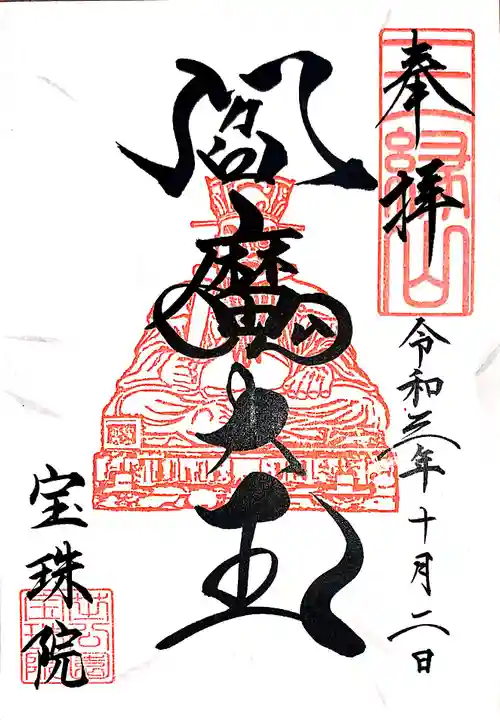 奉拝
三縁山
令和三年十月二日
閻魔大王
宝珠院